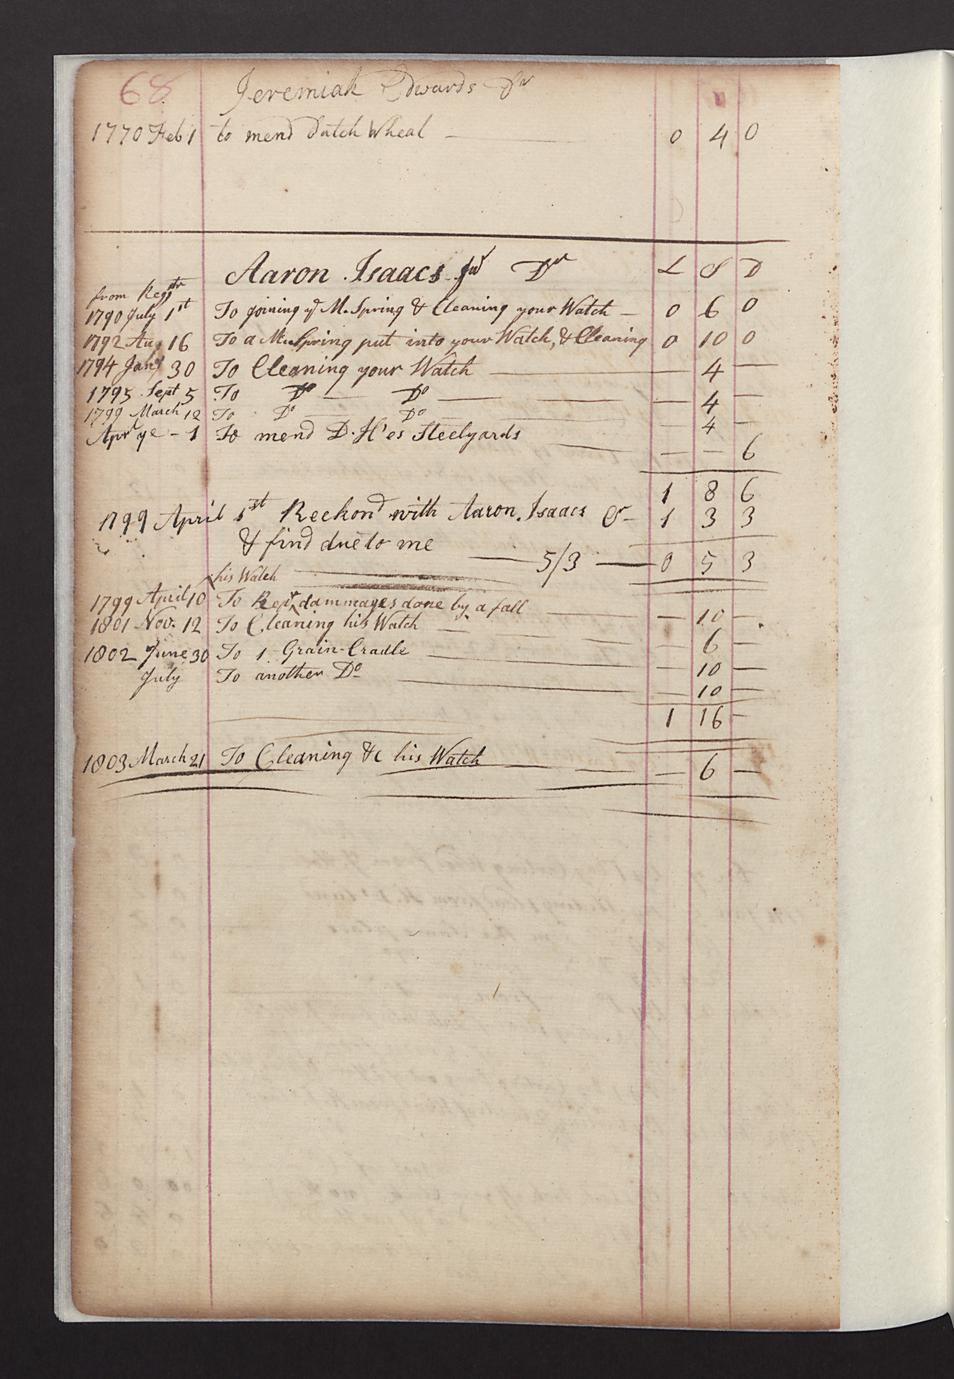 68 Jeremiah Edwards Dr
1770 Feb 1 to mend Dutch Wheal 0 4 0
Aaron Isaacs Jur Dr L S D
from Regstr
1790 July 1st To joining ye M. Spring & Cleaning your Watch 0 6 0
1792 Aug 16 To a M. Spring put into your Watch, & Cleaning 0 10 0
1794 Jany 30 To Cleaning your Watch — 4 —
1795 Sept 5 To Do Do — 4 —
1799 March 12 To Do Do — 4 —
Apr ye - 1 To mend D. H'es Steelyards — — 6
1 8 6
1799 April 1st Reckond with Aaron Isaacs Cr 1 3 3
& find due to me 5/3 0 5 3
his Watch
1799 April 10 To Repr dammages done by a fall — 10 —
1801 Nov. 12 To Cleaning his Watch — 6 —
1802 June 30 To 1 Grain-Cradle — 10 —
July To another Do — 10 —
1 16 —
1803 March 21 To Cleaning &c his Watch — 6 —